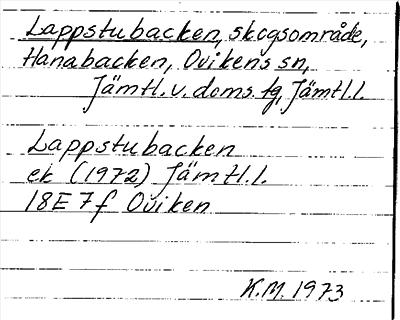 Lappstubacken, skogsområde,
Hanabacken, Ovikens sn,
Jämtl.v.doms.tg, Jämtl.l.
Lappstubacken
ek (1972) Jämtl.l.
18E 7f Oviken
K.M. 1973